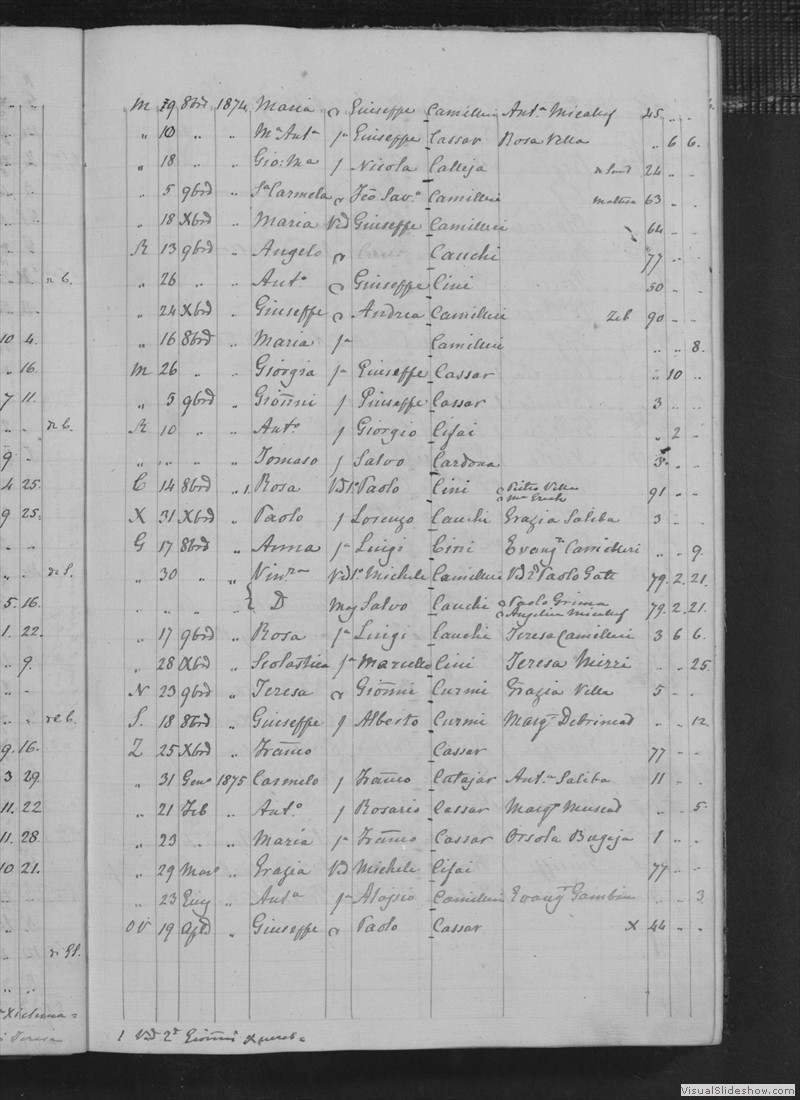 M 29 8bre 1874 Maria Giuseppe Camilleri Ant.a Micallef 45 " "
" 10 " " M.a Ant.a f.a Giuseppe Cassar Rosa Vella " 6 6.
" 18 " " Gio: Ma f Nicola Calleja 24 " "
" 5 9bre " S.a Carmela Sav.o Camilleri 63 - "
" 18 Xbre " Maria Vd Giuseppe Camilleri 64
R 13 9bre " Angelo Cauchi 77 " "
n 6. " 26 " " Ant.o Giuseppe Cini 50 - "
" 24 Xbre " Giuseppe Andrea Camilleri Zeb 90 - "
10 4. " 16 8bre " Maria f.a Camilleri " " 8.
" 16. M 26 " " Giorgia f.a Giuseppe Cassar " 10 "
7 11. " 5 9bre " Gionni f Giuseppe Cassar 3 " "
R 10 " " Ant.o f Giorgio Cefai " 2 "
9 - " " " " Tomaso f Salvo Cardona 3 - "
4 25. C 14 8bre " 1. Rosa Vd 1.o Paolo Cini Pietro Vella 91 - "
9 25. X 31 Xbre " Paolo f Lorenzo Cauchi Grazia Saliba 3 - "
G 17 8bre " Anna f.a Luigi Cini Evang.a Camilleri " " 9.
" 30 " " Vd 1.o Michele Camilleri Vd 2.o Paolo Gatt 79. 2. 21.
5. 16. " " " " D Mog Salvo Cauchi Paolo Grima Angelica Micallef 79. 2. 21.
1. 22. " 17 9bre " Rosa f.a Luigi Cauchi Teresa Camilleri 3 6 6.
" 9. " 28 Xbre " Scolastica f.a Marcello Cini Teresa Mizzi " " 25.
N 23 9bre " Teresa Gionni Curmi Grazia Vella 5 - "
S. 18 8bre " Giuseppe f Alberto Curmi Marg.a " " 12
9. 16. Z 25 Xbre " Franco Cassar 77 - "
3 29. " 31 Gen.o 1875 Carmelo f Franco Catajar Ant.a Saliba 11 - "
11. 22 " 21 Feb " Ant.o f Rosario Cassar Marg.a Muscad " " 5.
11. 28. " 23 " " Maria f.a Franco Cassar Orsola Bugeja 1 " "
10 21. " 29 Mar.o " Grazia Vd Michele Cefai 77 - "
" 23 " Ant.a f.a Aloisio Camilleri Evang.a Gambin " " 3
OV 19 " Giuseppe Paolo Cassar X 44 " "
Teresa
1 Vd 2.o Gionni
VisualSlideshow.com